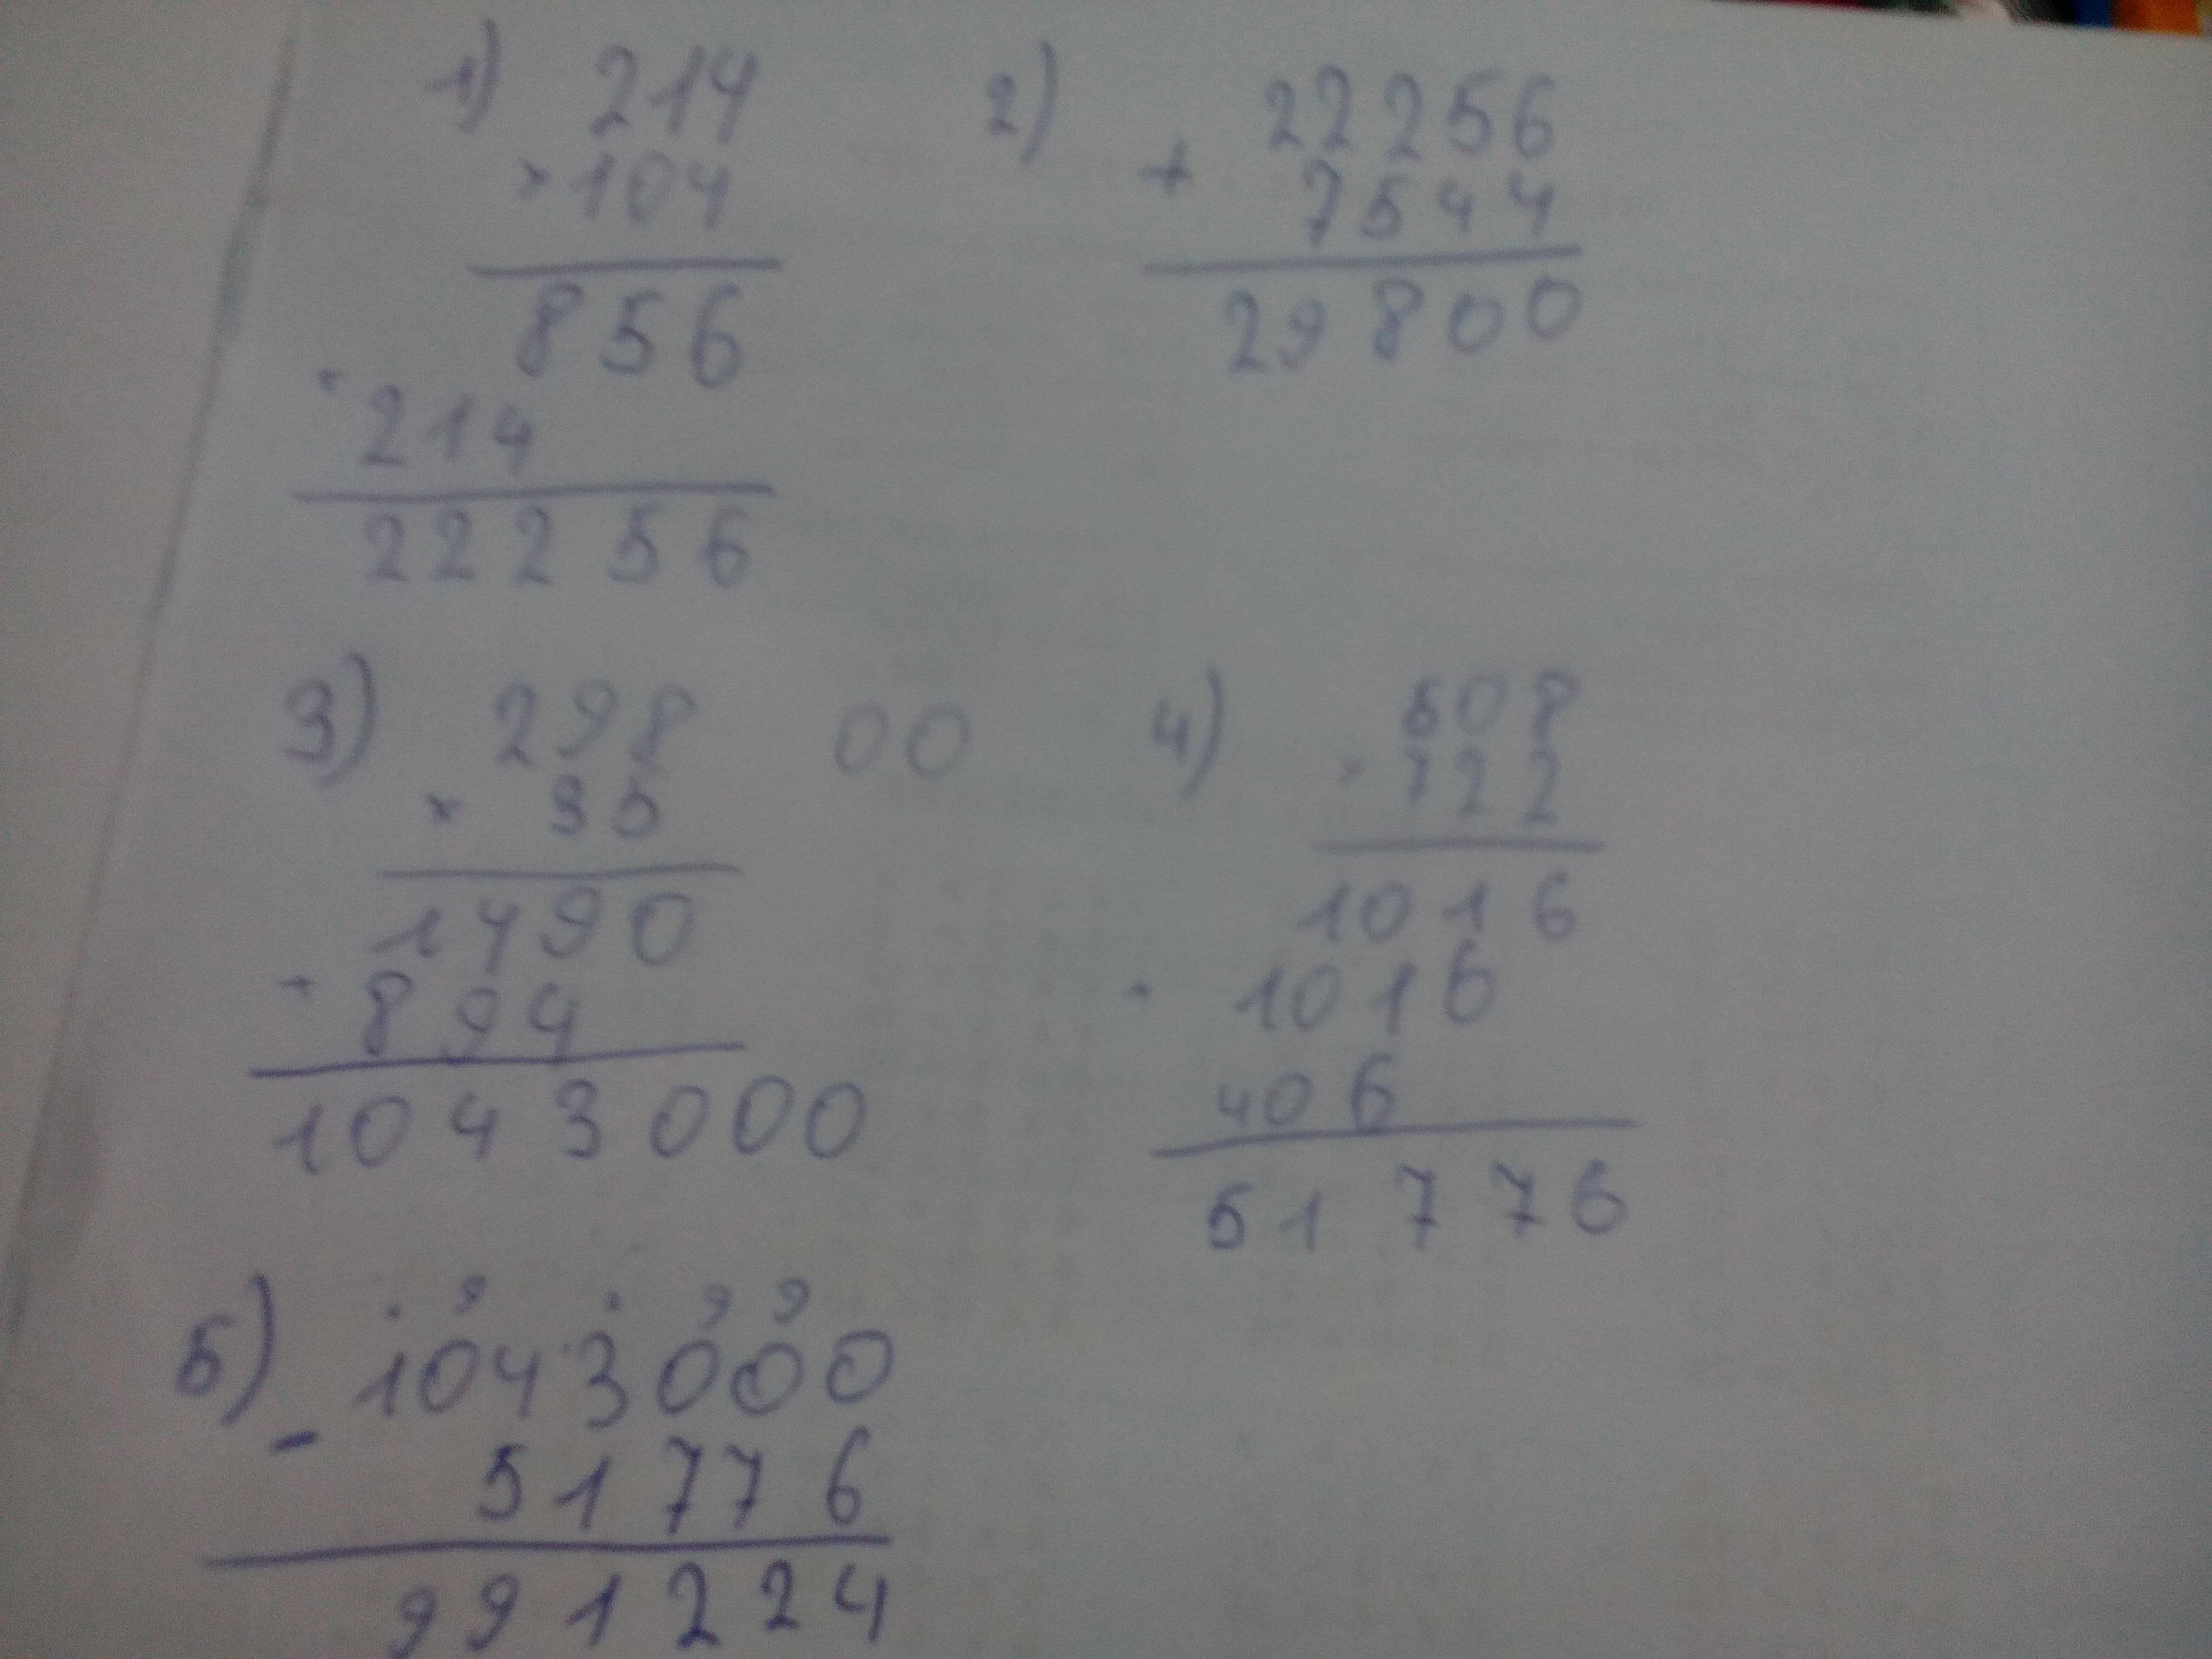 1) 214
× 104
856
+ 214
22256
2) 22256
+ 7544
29800
3) 298 00
× 35
1490
+ 894
1043000
4) 508
× 122
1016
1016
406
51776
9 9 9
5) 1043000
- 51776
991224